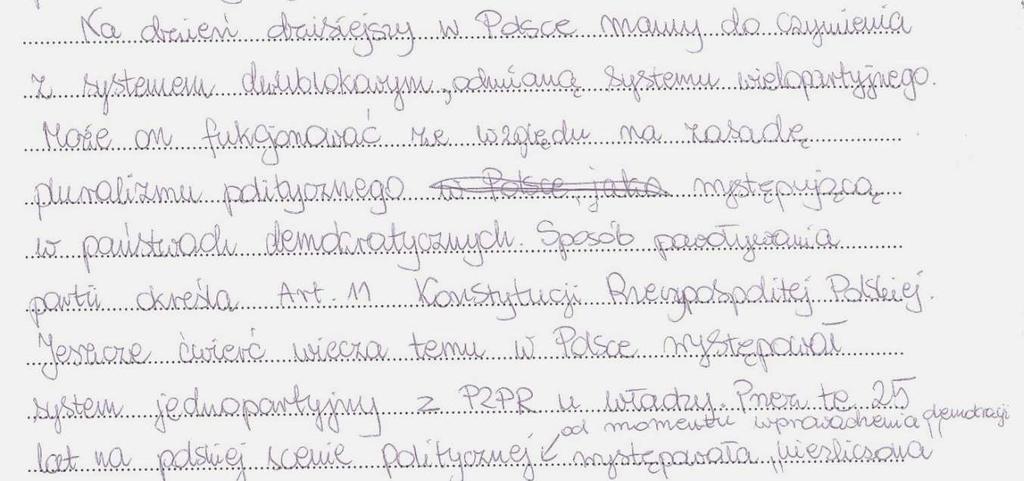 Na dzień dzisiejszy w Polsce mamy do czynienia
z systemem dwublokowym, odmianą systemu wielopartyjnego.
Może on fukcjonować ze względu na zasadę
pluralizmu politycznego w Polsce, jako występującą
w państwach demokratycznych. Sposób powoływania
partii określa Art. 11 Konstytucji Rzeczpospolitej Polskiej.
Jeszcze ćwierć wiecza temu w Polsce występował
system jednopartyjny z PZPR u władzy. Przez te 25
od momentu wprowadzenia demokracji
lat na polskiej scenie politycznej występowała niezliczona